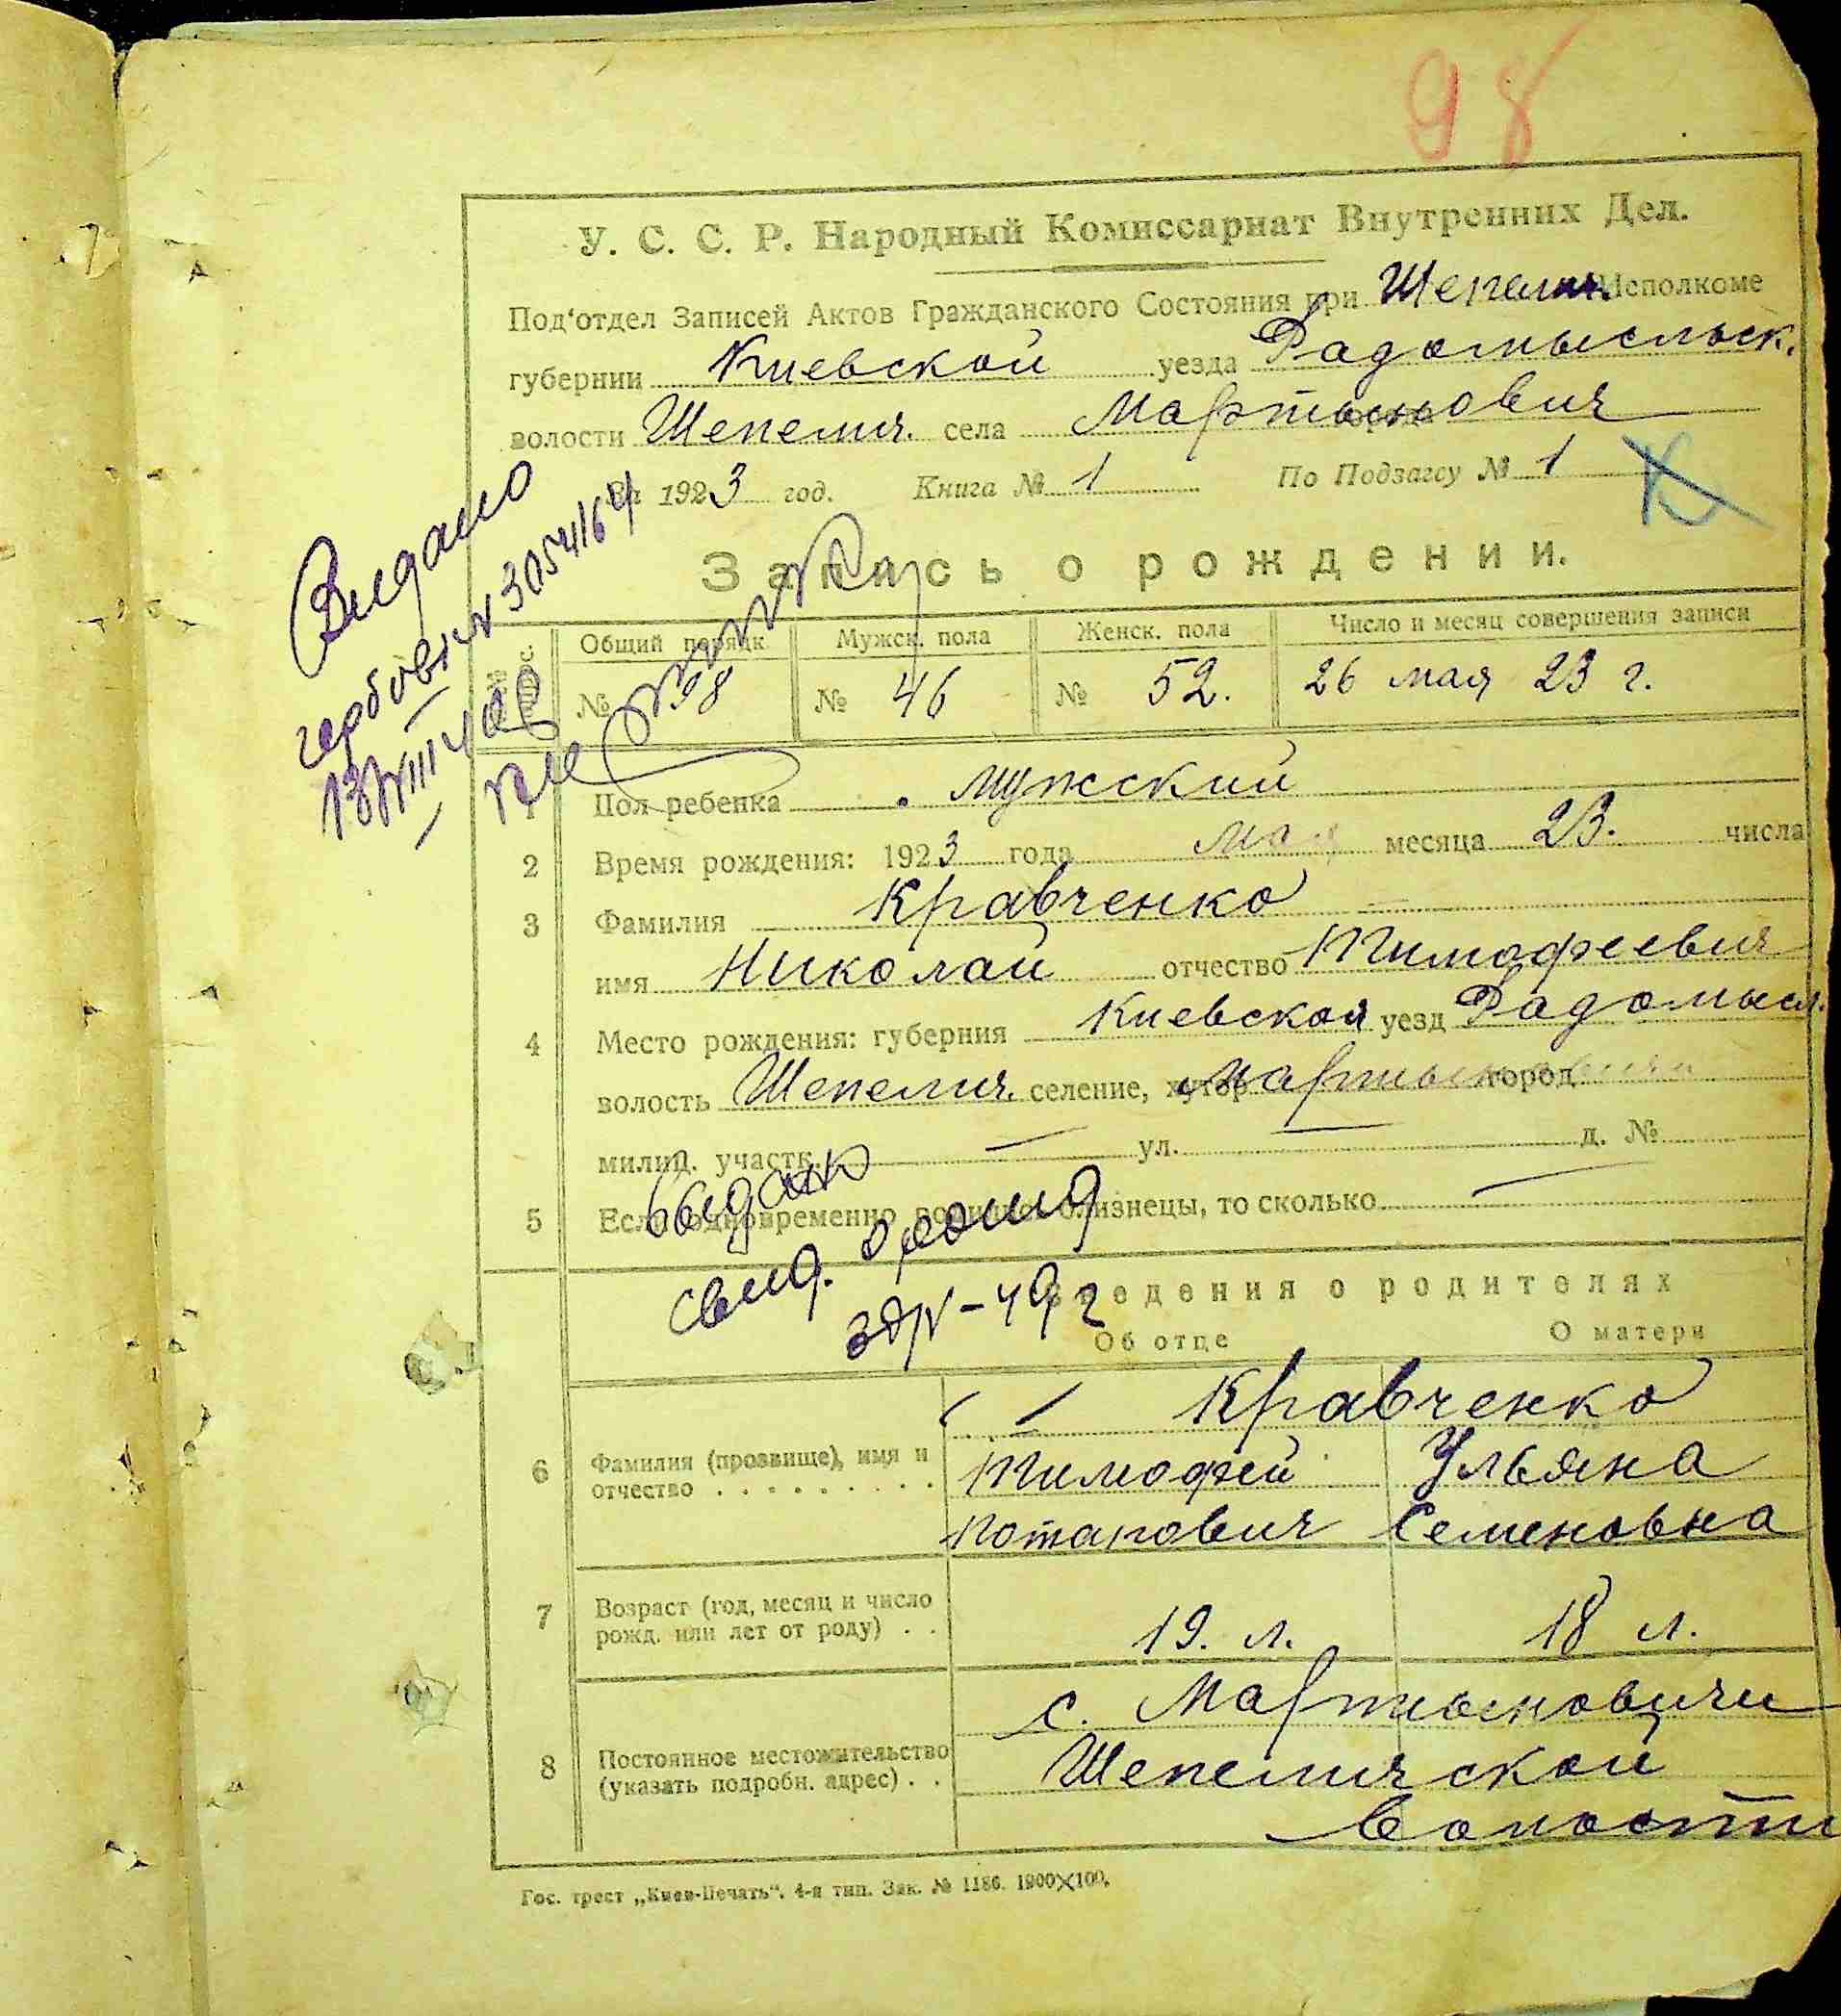 98
У. С. С. Р. Народный Комиссариат Внутренних Дел.
Под‘отдел Записей Актов Гражданского Состояния при Шепелич. Исполкоме
губернии Киевской уезда Радомысльск.
волости Шепелич. села Мартынович
За 1923 год. Книга № 1 По Подзагсу № 1
Запись о рождении.
Общий порядк Мужск. пола Женск. пола Число и месяц совершения записи
№ 98 № 46 № 52. 26 мая 23 г.
1 Пол ребенка мужский
2 Время рождения: 1923 года мая месяца 23. числа
3 Фамилия Кравченко
имя Николай отчество Тимофеевич
4 Место рождения: губерния Киевская уезд Радомысл.
волость Шепелич. селение, хутор город Мартыновичи
милиц. участк. — ул. — д. №
5 Если одновременно родились близнецы, то сколько —
Сведения о родителях
Об отце О матери
Кравченко
6 Фамилия (прозвище), имя и отчество . . . . . . . . .
Тимофей Ульяна
Потапович Семеновна
7 Возраст (год, месяц и число рожд. или лет от роду) . .
19. л. 18 л.
8 Постоянное местожительство (указать подробн. адрес) . .
с. Мартыновичи
Шепеличской
волости
Гос. трест „Киев-Печать“. 4-я тип. Зак. № 1186. 1900×100.
Видано
гербовый
выдано
свид.